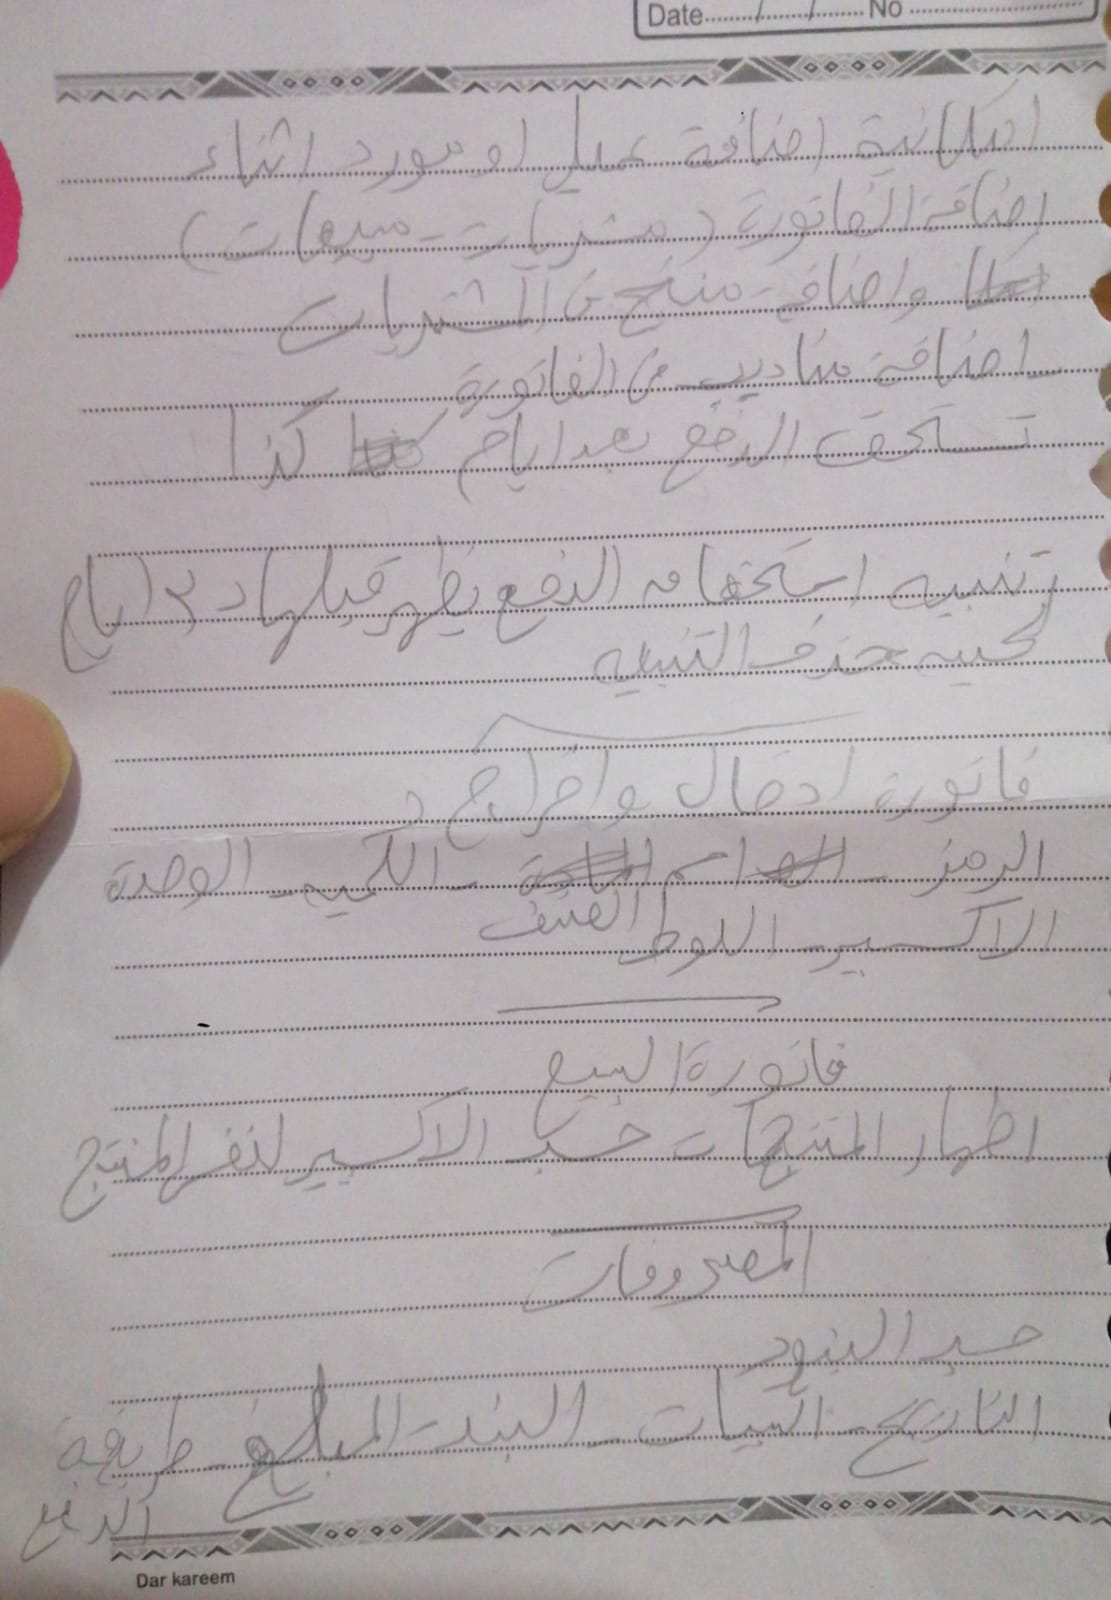 Date ..../..../.... No ....
امكانية اضافة عميل او مورد اثناء
اضافة الفاتورة (مشتريات - مبيعات)
واضافه منتج من المشتريات
اضافة مناديب من الفاتورة
تستحق الدفع بعد ايام كذا
تنبيه استحقاق الدفع يظهر قبلها ٣ ايام
حذف التنبيه
فاتورة ادخال واخراج
الرمز - اسم - الكميه - الوحدة
الصنف
الاكسبير - اللوط
فاتورة البيع
اظهار المنتجات حسب الاكسبير لنفس المنتج
المصروفات
حسب البنود
التاريخ - البيان - البند - المبلغ - طريقة
الدفع
Dar kareem